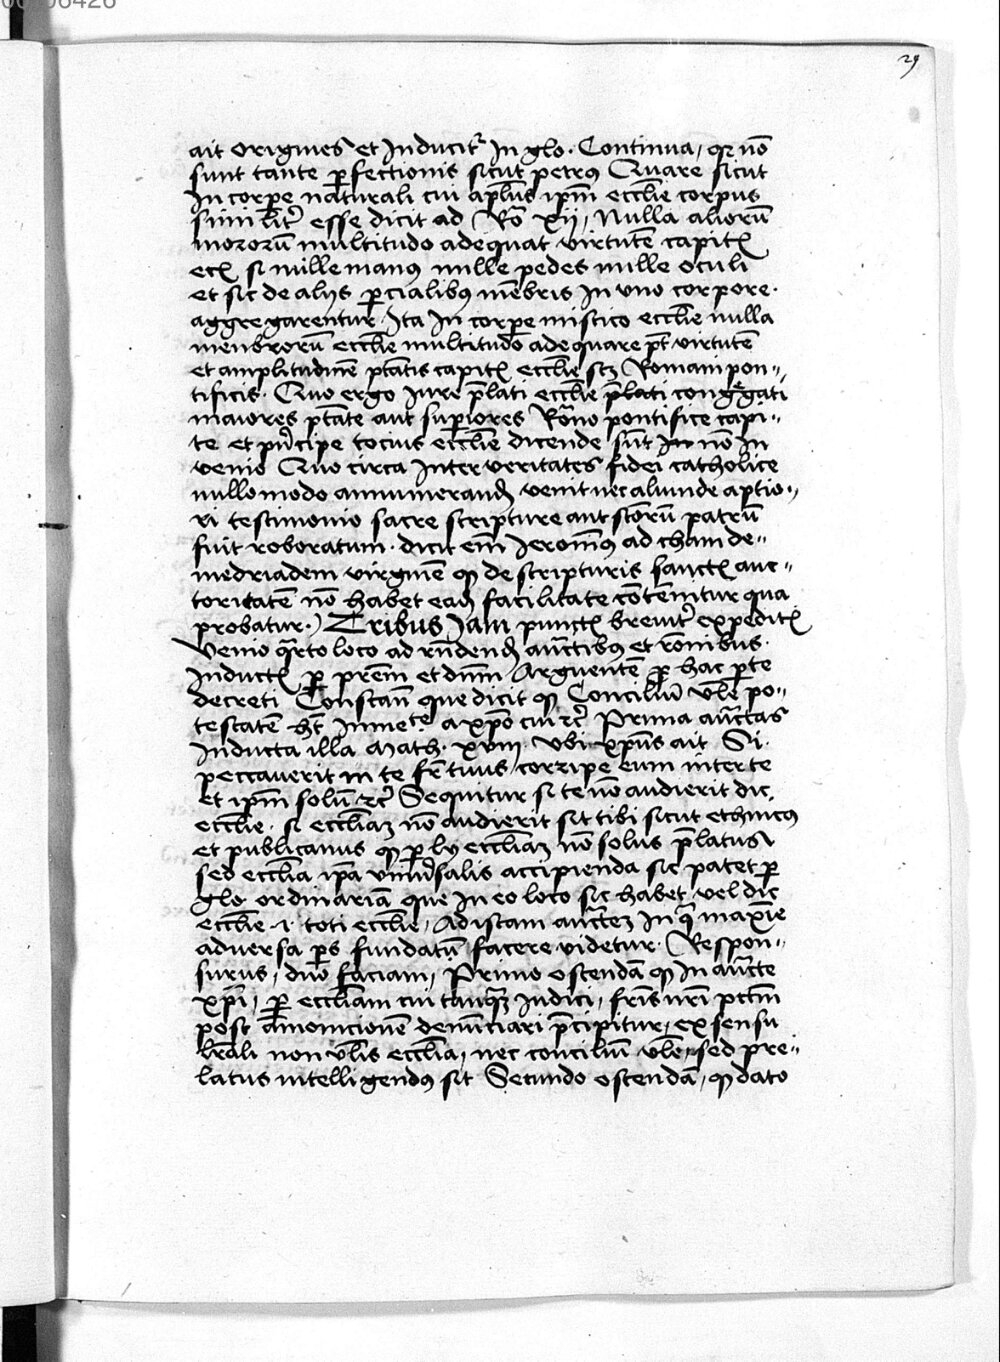 29
ait origines et Inducitr In glo. Continua, qꝛ nō
sunt tante ꝑfectionis sicut petrꝰ Quare sicut
In corpe naturali cui apl̄us ipm̄ eccl̄ie corpus
simil̄itr̄ esse dicit ad Rō xij, Nulla aliorū
mororū multitudo adequat virtutē capitꝭ
etꝭ si mille manꝰ mille pedes mille oculi
et sic de alijs ꝑcialibꝰ mēbris In uno corpore.
aggregarentur. Ita In corpe mistico eccl̄ie nulla
menbrorū eccl̄ie multitudo adequare pt̄ virtutē
et amplitudinē ptātis capitꝭ eccl̄ie scꝫ Romani pon〃
tificis. Quo ergo Iure p̄lati eccl̄ie p̄lati congͤgati
maiores ptāte aut suꝑiores Rōno pontifice capi〃
te et pⁱncipe tocius eccl̄ie dicende sūt In nō In
venio Quo circa Inter veritates fidei catholice
nullo modo annumerand venit nec aliunde aptio〃
ri testimonio sacre scripture aut scōrū patrū
fuit roboratum. dicit em̄ Ieronimꝰ ad cham de〃
medriadem virginē ꝙ de scripturis sanctꝭ auc〃
toritatē nō habet eadē facilitate cōtēnitur qua
probatur.) Tribus Iam punctꝭ breuitr̄ expeditꝭ
Venio qͣrto loco ad rn̄dendū auctībus et rōnibus.
Inductꝭ ꝑ prēm et dnm̄ Arguentē ꝓ hac ꝑte
decreti Constan̄ que dicit ꝙ Conciliū vl̄e po〃
testatē hꝫ Inmete a xp̄o cui ꝛc̄ Prima auctas
Inducta illa Math. xviij. vbi xp̄us ait Si.
peccauerit in te fr̄ tuus corripe eum inter te
et ipm̄ solū ꝛc̄ Sequitur si te nō audierit dic
eccl̄ie. si eccl̄iaꝫ nō audierit sit tibi sicut ethnicꝰ
et publicanus ꝙ ꝑ ly eccl̄iaꝫ nō solus p̄latus
sed eccl̄ia ip̄a uniūsalis accipienda sic patet ꝑ
glo. ordinariam que In eo loco sic habet, vel dic
eccl̄ie .i. toti eccl̄ie, Ad istam auctēꝫ In qͣ maxīe
aduersa pars fundatū facere videtur. Respon〃
surus, duo faciam, Primo ostendā ꝙ In aucte
xp̄i, ꝑ eccl̄iam cui tanqꝫ Iudici, fr̄is nr̄i pctm̄
post amonicionē denūciari p̄cipitur, ex sensu
lr̄ali non vl̄is eccl̄ia, nec conciliū vl̄e, sed pre〃
latus intelligendꝰ sit Secundo ostendā, ꝙ dato